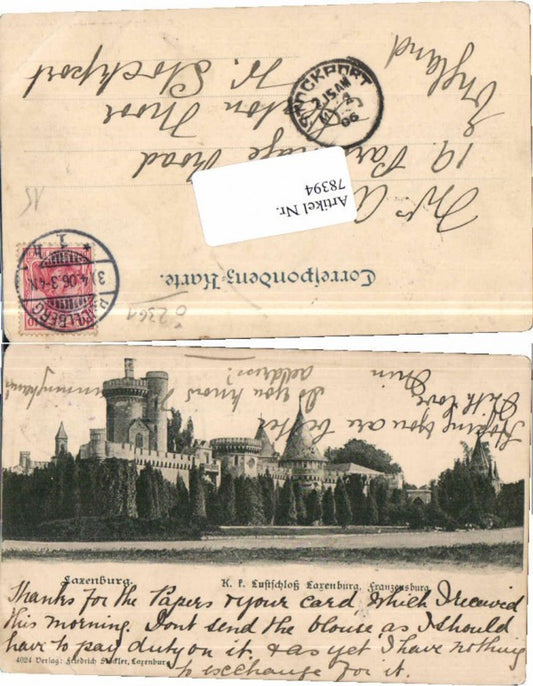 Correspondenz-Karte.
Artikel Nr.
78394
Mrs
19.
Road
Moor
Nr. Stockport
England
STOCKPORT
2.15 AM
06
4.06.3-4N.
15
Do you know
address?
Hoping you are better
With love
Laxenburg.
K. k. Lustschloß Laxenburg. Franzensburg.
Thanks for the Papers & your card which I received
this morning. Dont send the blouse as I should
have to pay duty on it. & as yet I have nothing
to exchange for it.
4024 Verlag: Friedrich Stöckler, Laxenburg